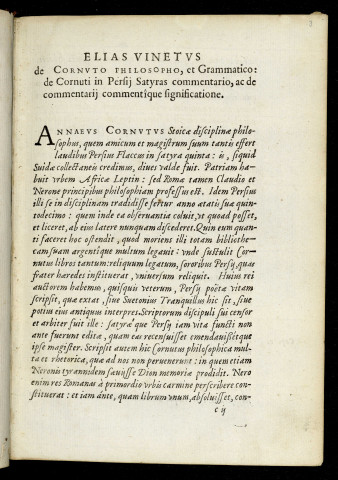 ELIAS VINETVS
de CORNVTO PHILOSOPHO, et Grammatico:
de Cornuti in Persij Satyras commentario, ac de
commentarij commentíque significatione.
ANNAEVS CORNVTVS Stoicæ disciplinæ philo-
sophus, quem amicum et magistrum suum tantis effert
laudibus Persius Flaccus in satyra quinta: is, siquid
Suidæ collectaneis credimus, diues valde fuit. Patriam ha-
buit vrbem Africæ Leptin: sed Romæ tamen Claudio et
Nerone principibus philosophiam professus est. Idem Persius
illi se in disciplinam tradidisse fertur anno ætatis suæ quin-
todecimo: quem inde ea obseruantia coluit, vt quoad posset,
et liceret, ab eius latere nunquam discederet. Quin eum quan-
ti faceret hoc ostendit, quod moriens illi totam bibliothe-
cam suam argentique multum legauit: vnde sustulit Cor-
nutus libros tantum: reliquum legatum, sororibus Persij, quæ
frater hæredes instituerat, vniuersum reliquit. Huius rei
auctorem habemus, quisquis veterum, Persij poëtæ vitam
scripsit, quæ extat, siue Suetonius Tranquillus hic sit, siue
potius eius antiquus interpres. Scriptorum discipuli sui censor
et arbiter fuit ille: satyræ que Persij iam vita functi non
ante fuerunt editæ, quam eas recensuisset emendauissétque
ipse magister. Scripsit autem hic Cornutus philosophica mul-
ta et rhetorica, quæ ad nos non peruenerunt: in quem etiam
Neronis tyrannidem sæuisse Dion memoriæ prodidit. Nero
enim res Romanas à primordio vrbis carmine perscribere con-
stituerat: et iam ante, quam librum vnum, absoluisset, con-
c ij